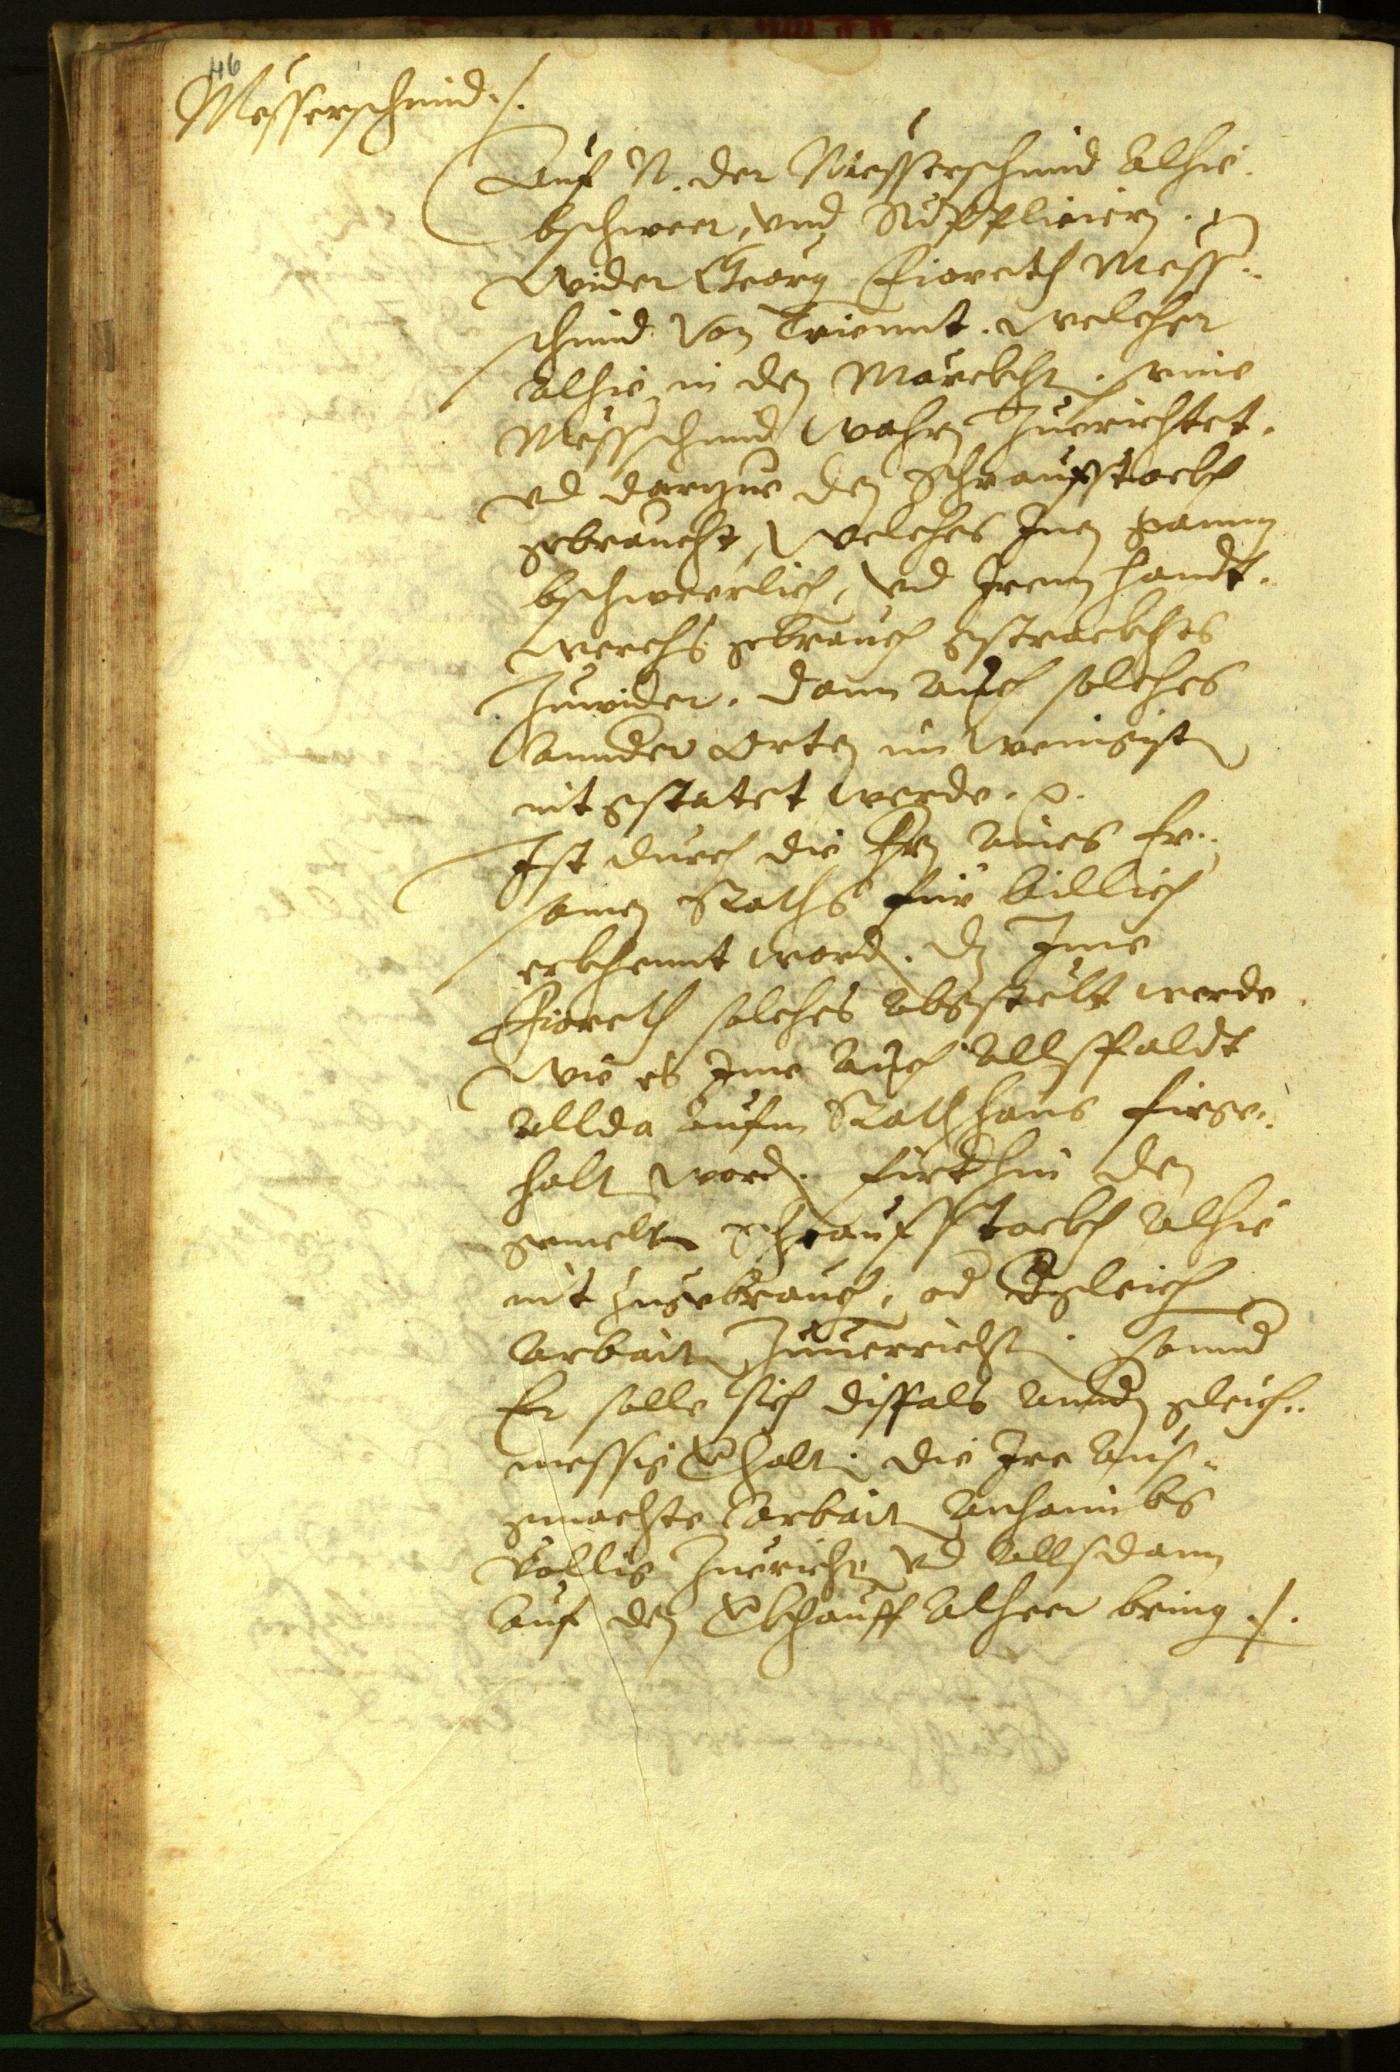 46
Messerschmid ./.
Auf N. der Messerschmid Alhie
bschwer, und Suppliciern.
wider Georg Fioreth Mess=
schmid von Trienndt. welcher
alhie in den Märckht. seine
Messschmid wahrn Zuerichtet.
vnd darzue den Schraufstockh
gebraucht, welches Inen gannz
bschwerlich, vnd Irem handt=
werchs gebrauch gstrackhts
Zuwider. dann auch solches
annder Orten im wenigisten
nit gstatet werde.
Ist durch die Hrn aines Er=
samen Raths für billich
erkhennt word. dz Ime
Fioreth solches abgstelt werde
wie es Ime auch allspaldt
allda aufm Rathhaus fürge=
halt word. fürthin den
gemelten Schraufstockh alhie
nit zugebrauch, od dgleich
arbait Zuuerricht. sonnd
Er solle sich disfals annd gleich=
messig verhalt. die Ire aus=
gemachte Arbait anhaimbs
völlig Zuericht vnd allsdann
auf den Vkhauff alheer bring ./.